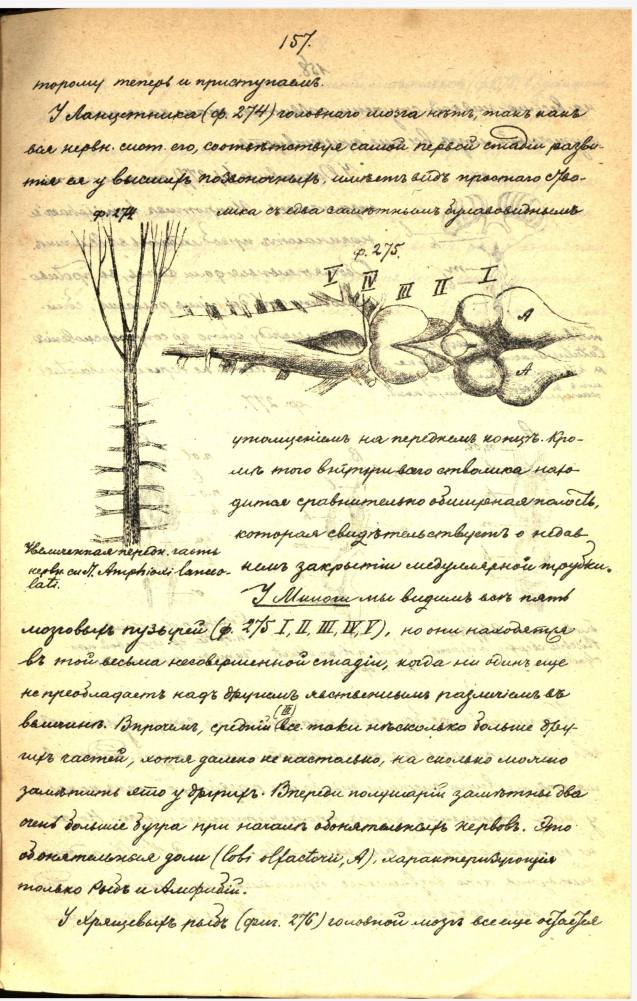 157.
торому теперь и приступаемъ.
У Ланцетника (ф. 274) головнаго мозга нѣтъ, такъ какъ
вся нервн. сист. его, соотвѣтствуя самой первой стадіи разви-
тія ея у высшихъ позвоночныхъ, имѣетъ видъ простаго ство-
лика съ едва замѣтнымъ булавовиднымъ
ф. 274
ф. 275.
V IV III II I
A
A
утолщеніемъ на переднемъ концѣ. Кро-
мѣ того внутри всего стволика нахо-
дится сравнительно обширная полость,
которая свидѣтельствуетъ о недав-
немъ закрытіи медуллярной трубки.
Увеличенная передн. часть
нервн. с. Amphioxi lanceo-
lati.
У Миноги мы видимъ всѣ пять
мозговыхъ пузырей (ф. 275 I, II, III, IV, V), но они находятся
въ той весьма несовершенной стадіи, когда ни одинъ еще
не преобладаетъ надъ другимъ явственнымъ различіемъ въ
величинѣ. Впрочемъ, средній (III) все таки нѣсколько больше дру-
гихъ частей, хотя далеко не настолько, на сколько можно
замѣтить это у другихъ. Впереди полушарій замѣтны два
очень большіе бугра при началѣ обонятельныхъ нервовъ. Это
обонятельныя доли (lobi olfactorii, A), характеризующія
только Рыбъ и Амфибій.
У Хрящевыхъ рыбъ (фиг. 276) головной мозгъ все еще остается